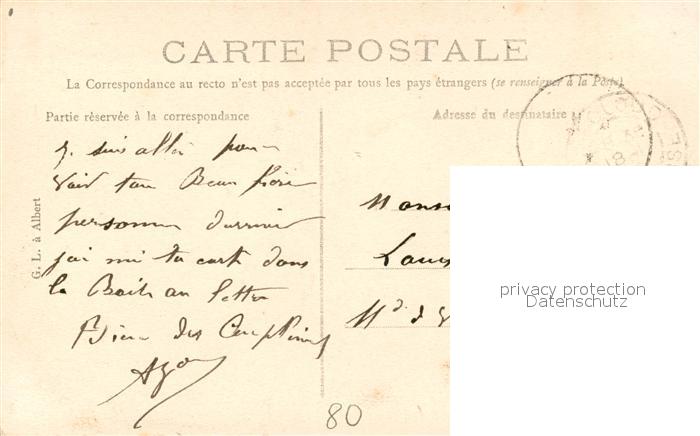 CARTE POSTALE
La Correspondance au recto n'est pas acceptée par tous les pays étrangers (se renseigner à la Poste)
Partie réservée à la correspondance
Adresse du destinataire
G. L. à Albert
suis allé pour
voir ton Beau frère
personne
jai mi ta carte dans
la Boite au lettre
Bien des
80
privacy protection
Datenschutz